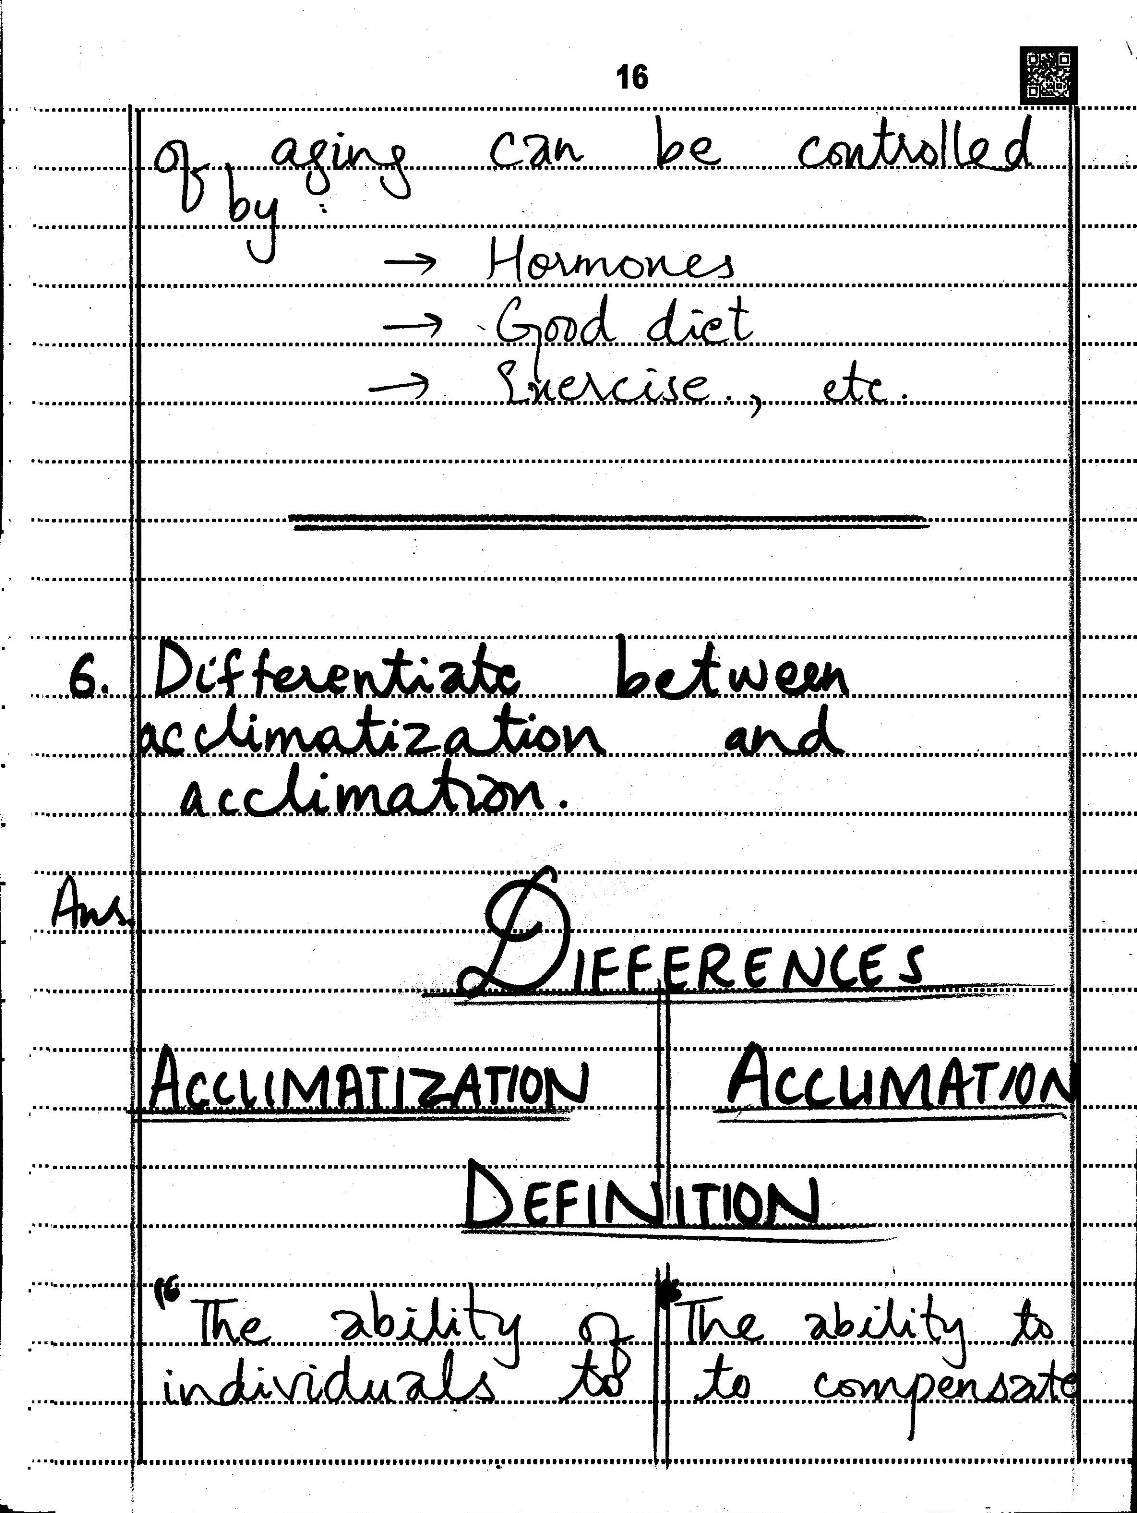 16
of aging can be controlled
by :
→ Hormones
→ Good diet
→ Exercise., etc.
6. Differentiate between
acclimatization and
acclimation.
Ans.
DIFFERENCES
ACCLIMATIZATION ACCLIMATION
DEFINITION
"The ability of "The ability to
individuals to to compensate